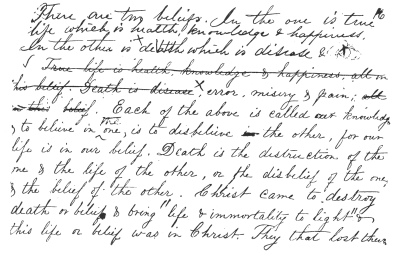 There are two beliefs. In the one is true
life which is health, knowledge & happiness.
In the other is death which is disease &
True life is health, knowledge & happiness, all in
his belief. Death is disease, error, misery & pain; all
in this belief. Each of the above is called our knowledge
& to believe in the one, is to disbelieve in the other, for our
life is in our belief. Death is the destruction of the
one & the life of the other, or the disbelief of the one,
& the belief of the other. Christ came to destroy
death or belief & bring "life & immortality to light" &
this life or belief was in Christ. They that lost their